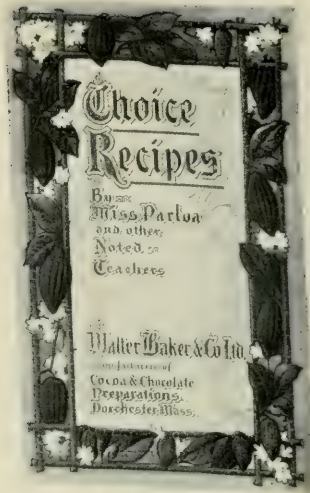 Choice
Recipes
By
Miss Parloa
and other
Noted
Teachers
Walter Baker & Co. Ltd.
of
Cocoa & Chocolate
Preparations,
Dorchester, Mass.